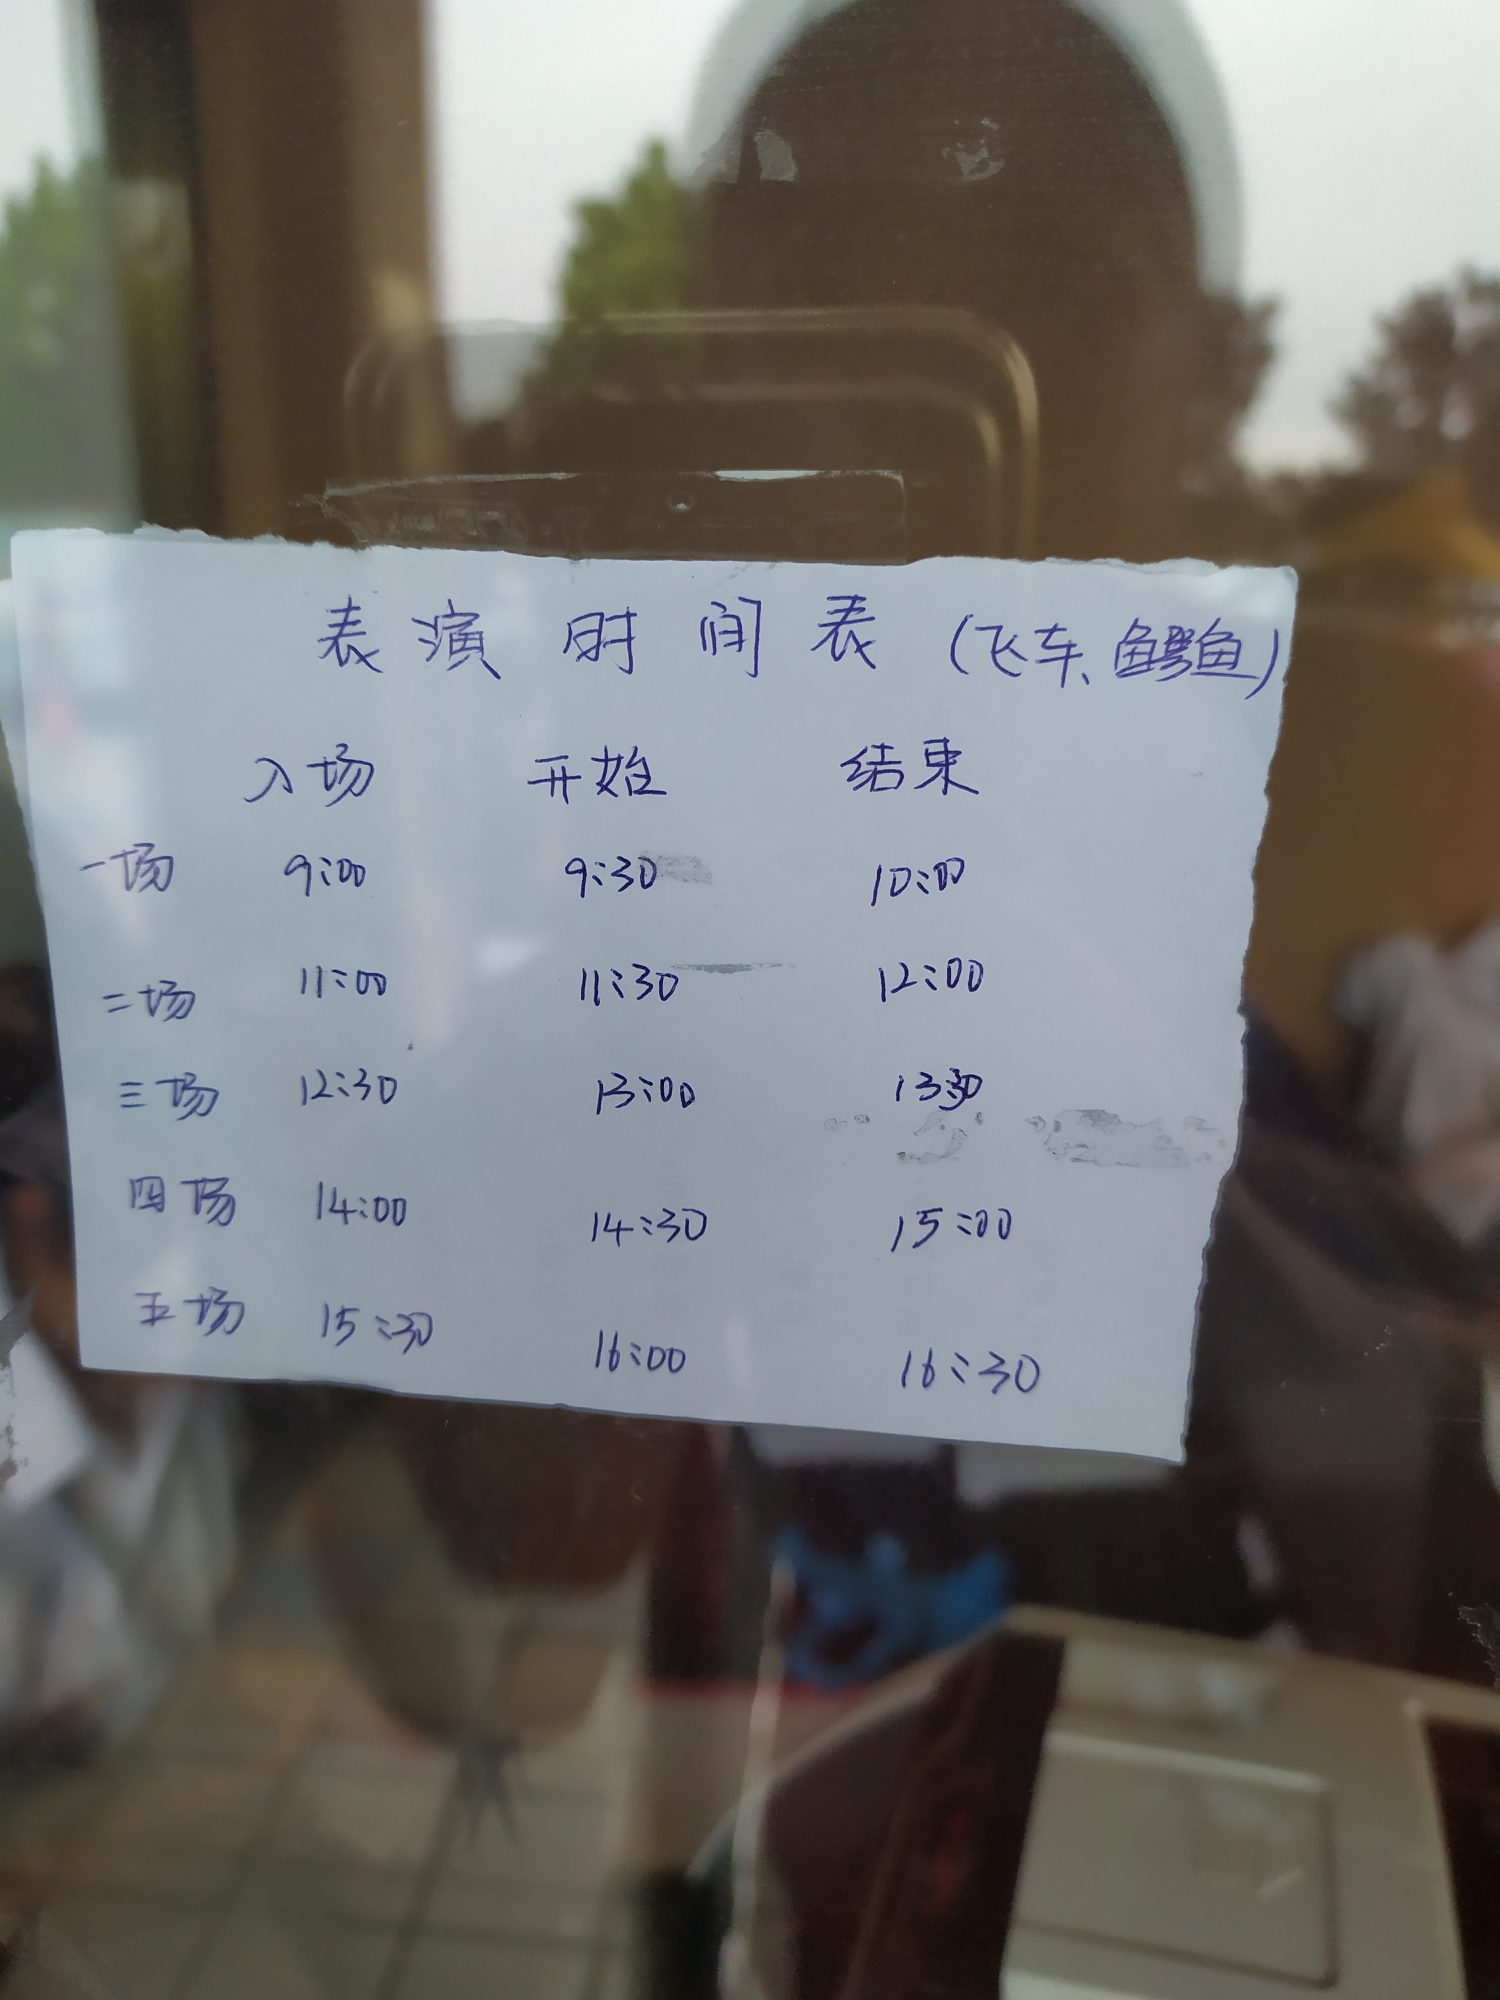 表演时间表(飞车、鳄鱼)
入场 开始 结束
一场 9:00 9:30 10:00
二场 11:00 11:30 12:00
三场 12:30 13:00 13:30
四场 14:00 14:30 15:00
五场 15:30 16:00 16:30